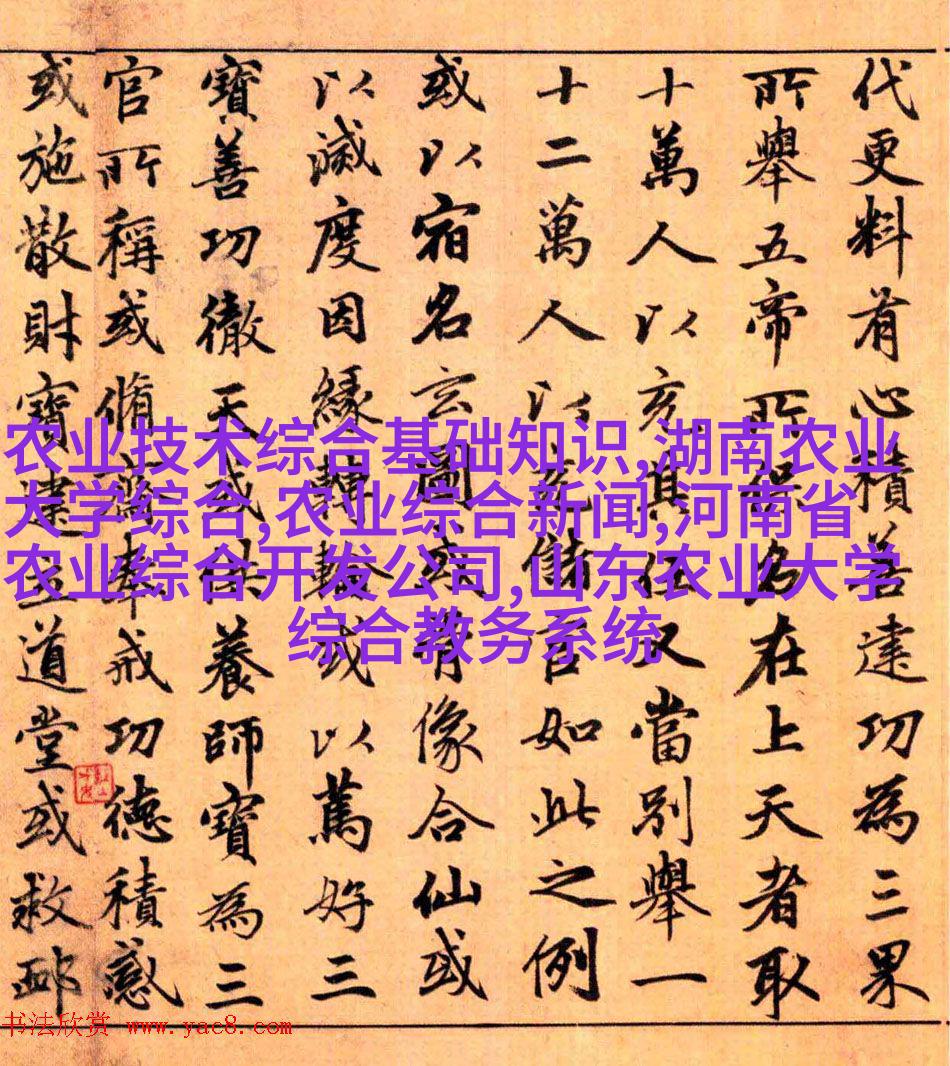 代更料有心積善建功為三果
所舉五帝所名在上天者取
十萬人以充其任又當別舉一
十二萬人以充儲官如此之例
或以宿名玄圖骨像合仙或
以滅度因緣轉輪或以篤好三
寶善功徹天或供養師寶為三
官所稱或脩齋奉戒功德積感
或施散財寶建立道堂或救
农业技术综合基础知识,湖南农业
大学综合,农业综合新闻,河南省
农业综合开发公司,山东农业大学
综合教务系统
书法欣赏 www.yac8.com